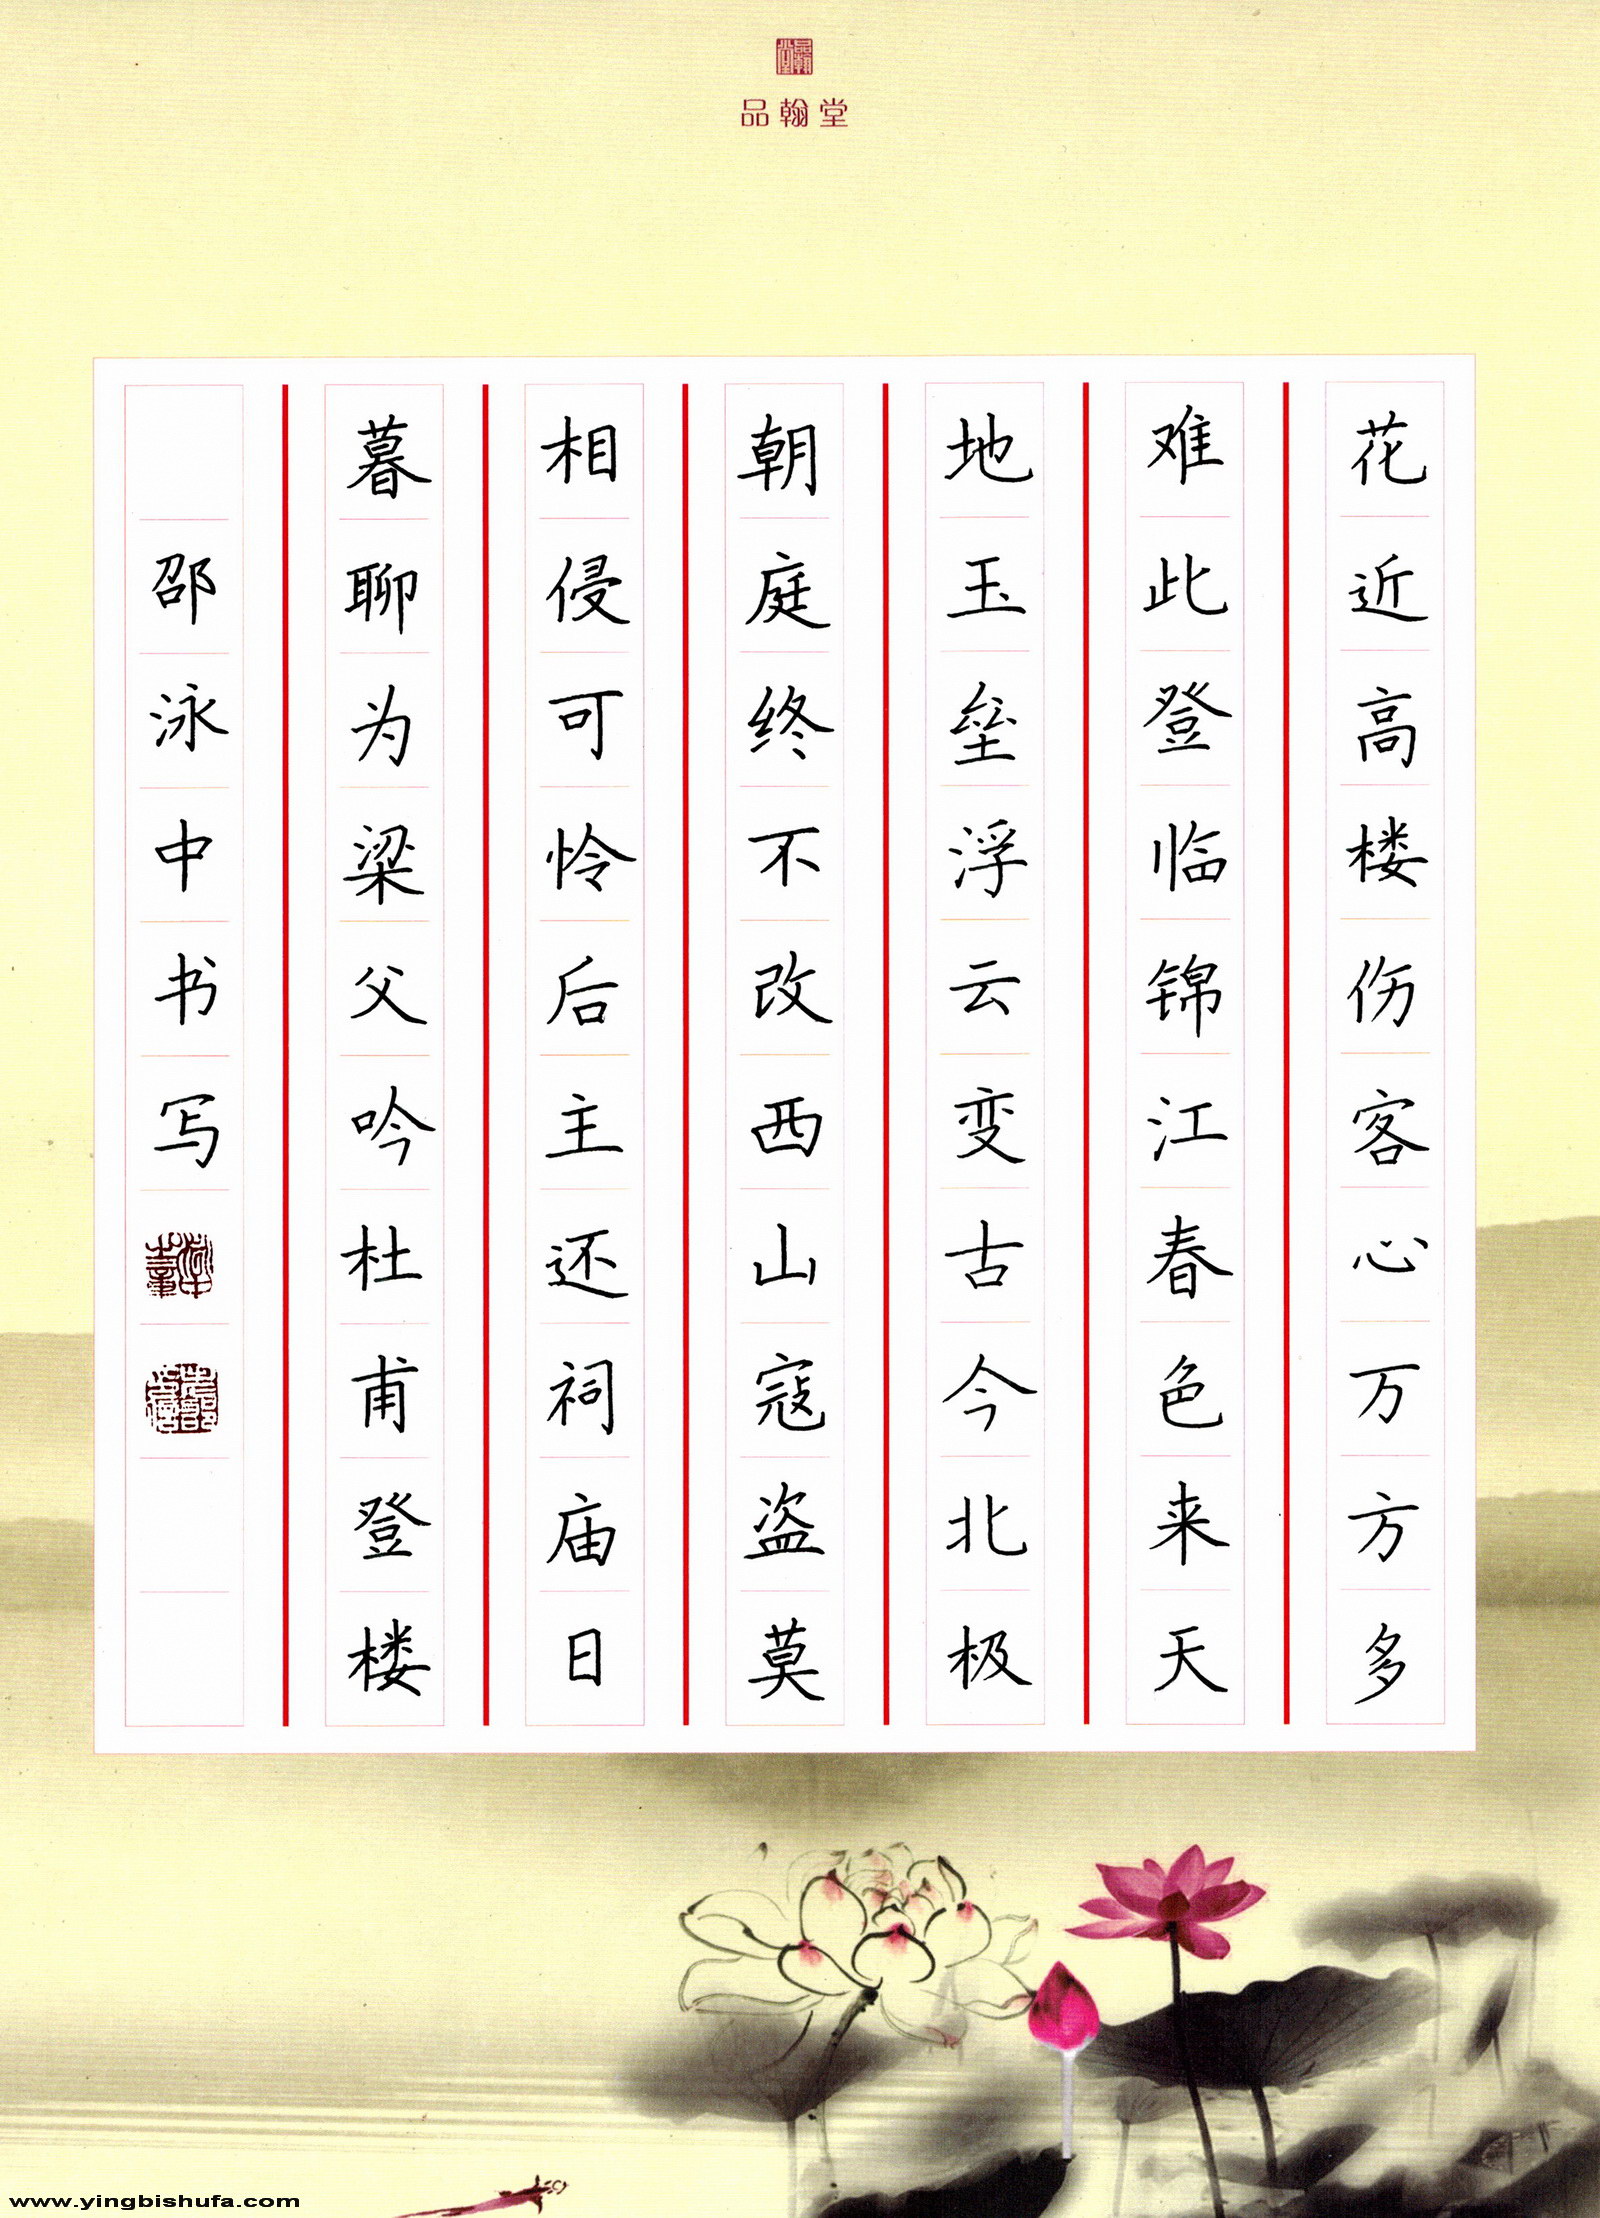 品翰堂
花近高楼伤客心万方多
难此登临锦江春色来天
地玉垒浮云变古今北极
朝庭终不改西山寇盗莫
相侵可怜后主还祠庙日
暮聊为梁父吟杜甫登楼
邵泳中书写
www.yingbishufa.com